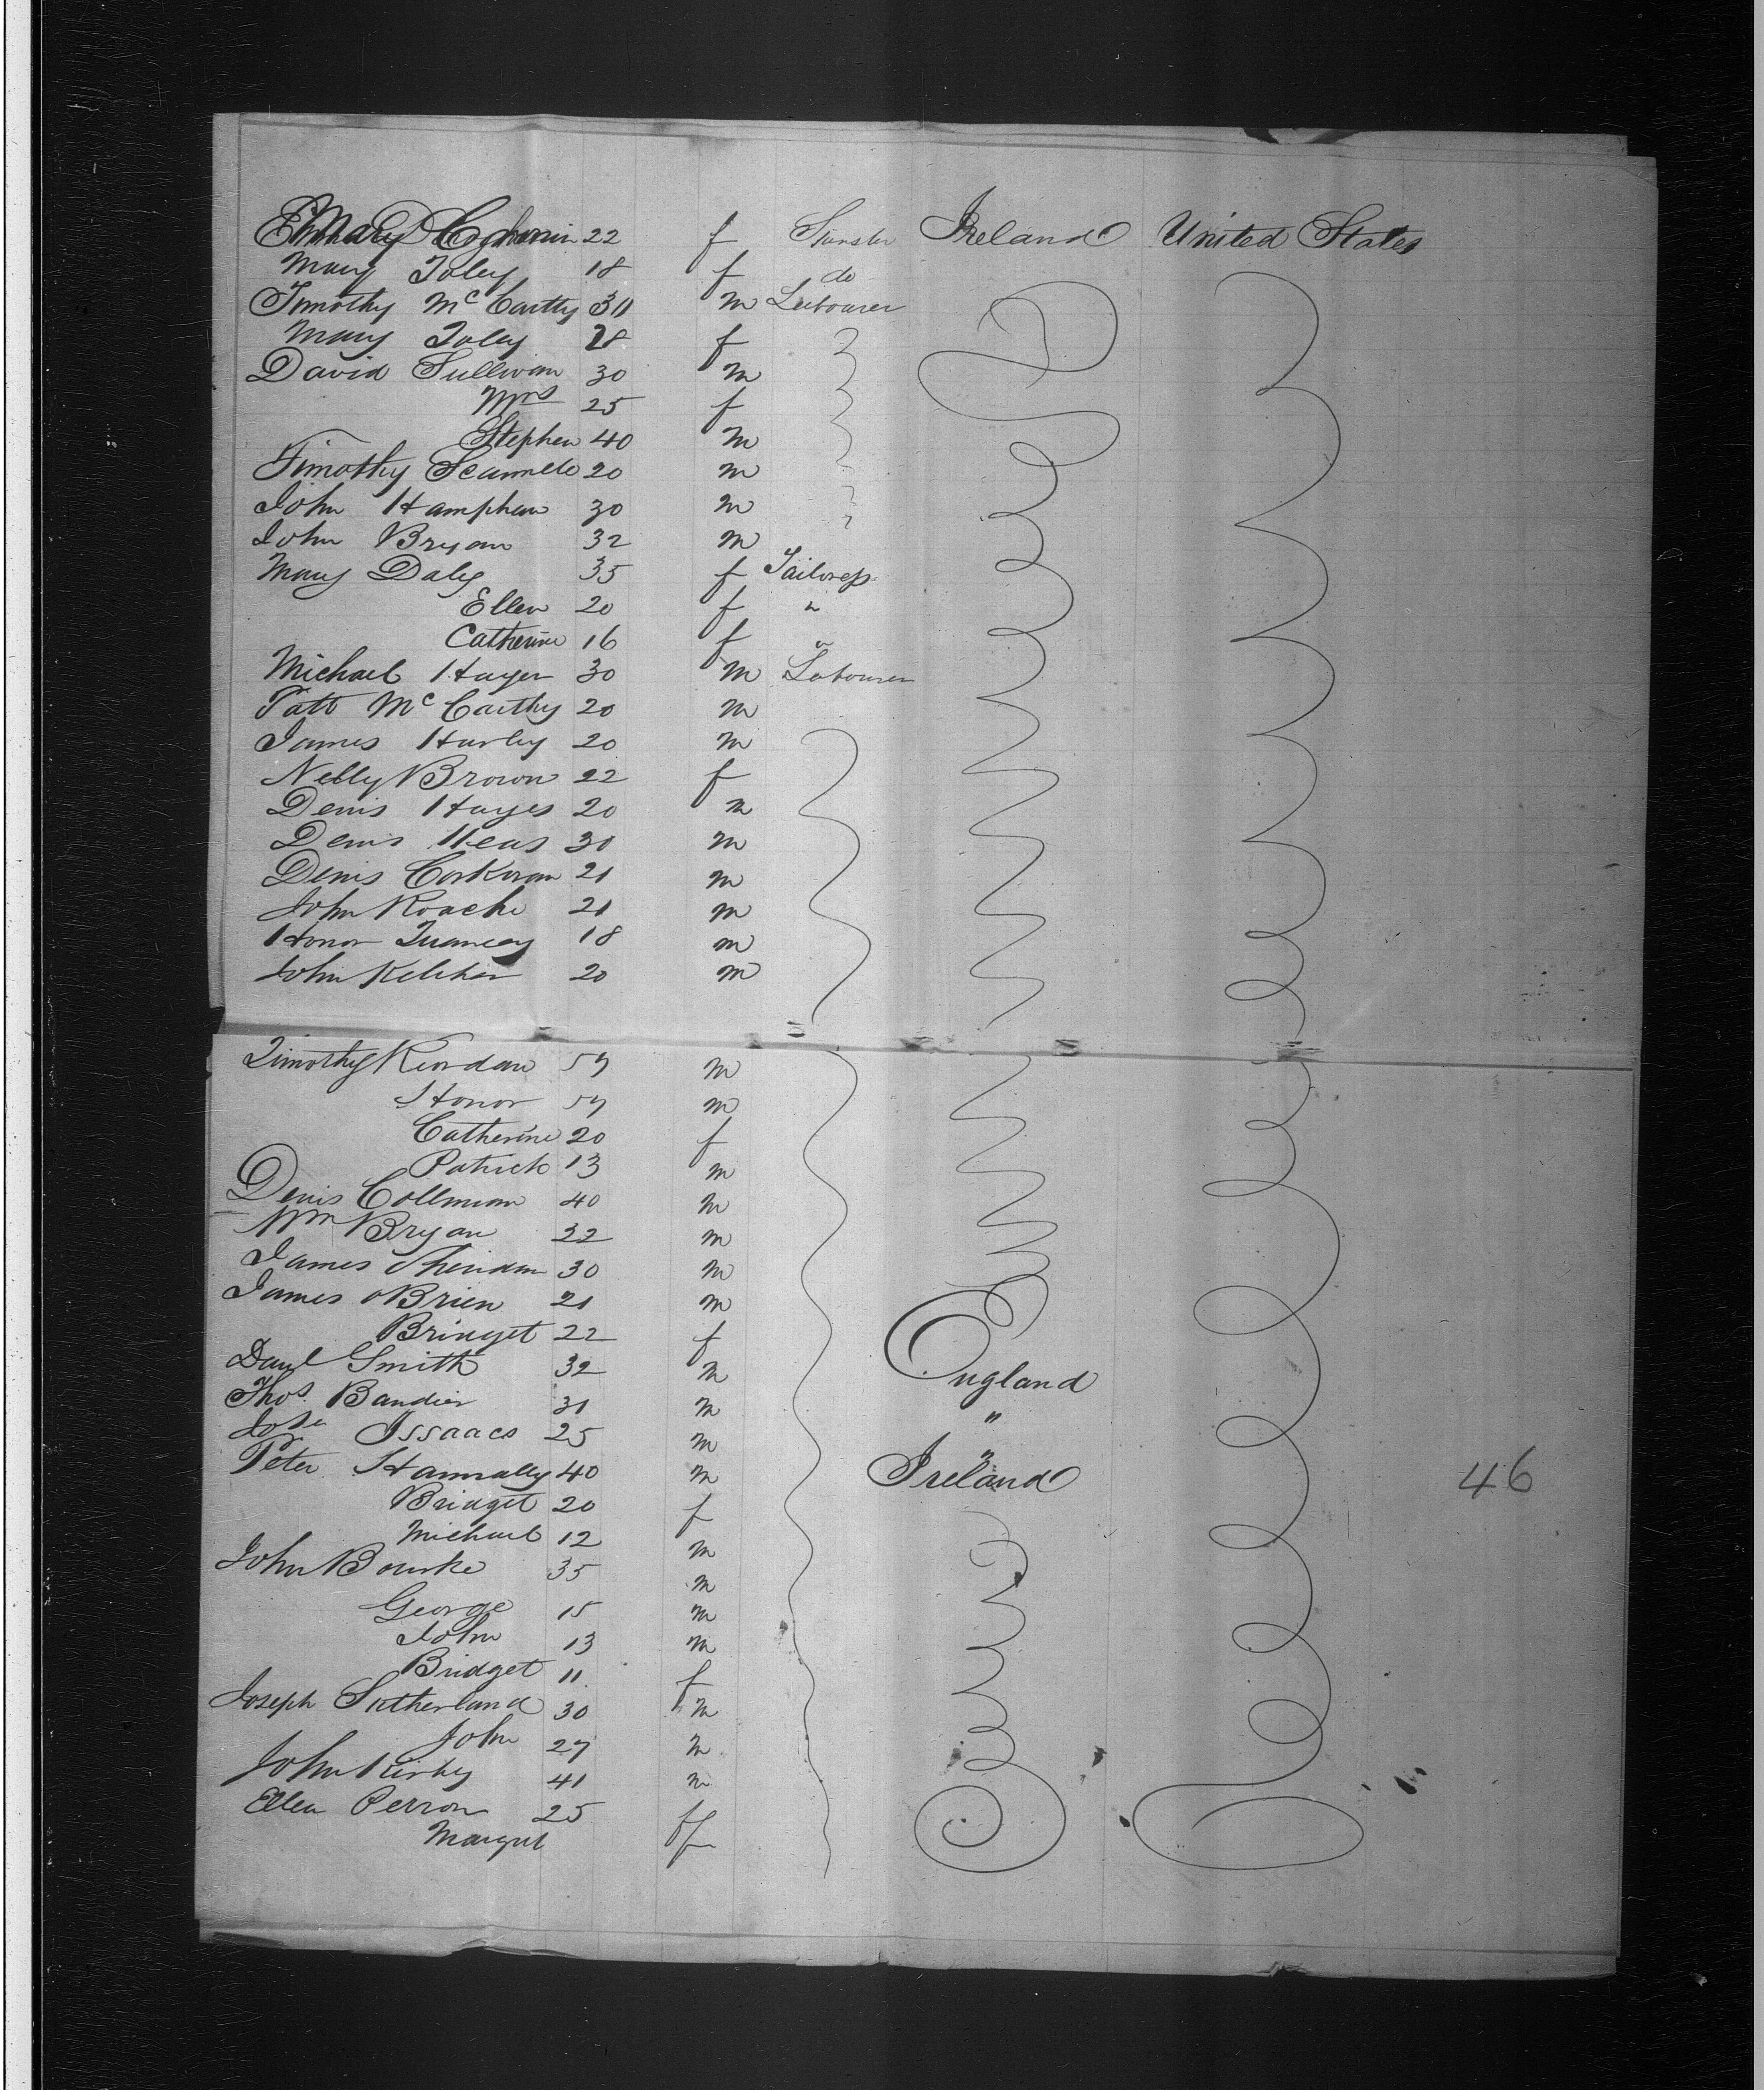 Mary Coghlanin 22 f Spinster Ireland United States
Mary Foley 18 f do
Timothy McCartty 30 m Labourer
Mary Foley 28 f
David Sullivan 30 m
Mrs 25 f
Stephen 40 m
Timothy Scannele 20 m
John Hamphan 30 m
John Bryan 32 m
Mary Daly 35 f Tailoress
Ellen 20 f "
Catherine 16 f "
Michael Hayer 30 m Labourer
Patt McCarthy 20 m
James Hurley 20 m
Nelly Brown 22 f
Denis Hayes 20 m
Denis Heas 30 m
Denis Corkoran 21 m
John Roache 21 m
Honor 18 m
John Keleher 20 m
Timothy Riordan 57 m
Honor 57 m
Catherine 20 f
Patrick 13 m
Denis Collman 40 m
Wm Bryan 32 m
James Sheridan 30 m
James OBrien 21 m
Bringet 22 f
Danl Smith 32 m England
Thos. Bandier 31 m "
Issaacs 25 m "
Peter Hannally 40 m Ireland
Bridget 20 f 46
Michael 12 m
John Bourke 35 m
George 15 m
John 13 m
Bridget 11 f
Joseph Sutherland 30 m
John 27 m
John Kirby 41 m
Ellen Perron 25 f
Margret f